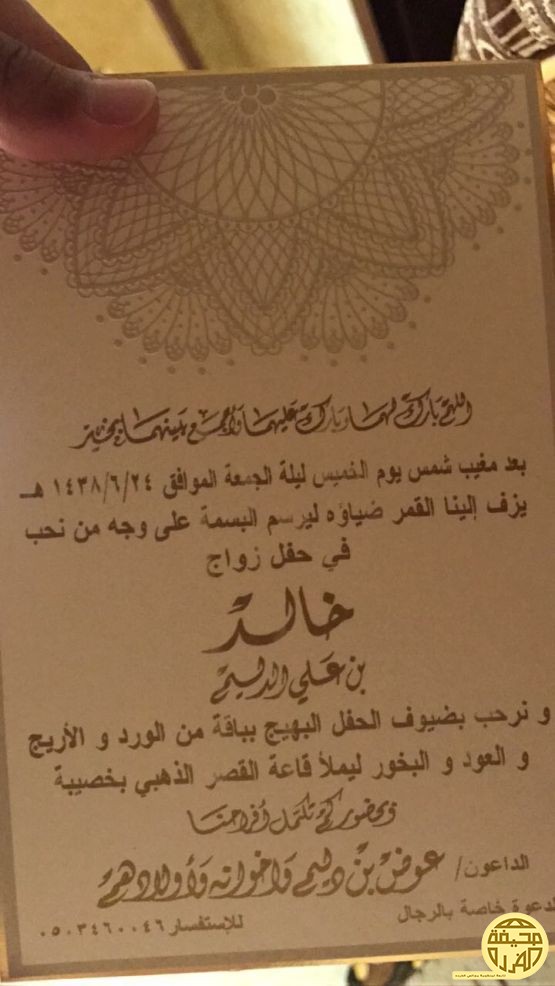 اللهم بارك لهما وبارك عليهما واجمع بينهما بخير
بعد مغيب شمس يوم الخميس ليلة الجمعة الموافق ١٤٣٨/٦/٢٤ هـ
يزف إلينا القمر ضياؤه ليرسم البسمة على وجه من نحب
في حفل زواج
خالد
بن علي الدليم
و نرحب بضيوف الحفل البهيج بباقة من الورد و الأريج
و العود و البخور ليملأ قاعة القصر الذهبي بخصيبة
وبحضوركم تكتمل أفراحنا
الداعون/ عوض بن دليم وإخوانه وأولادهم
الدعوة خاصة بالرجال
للإستفسار ٠٥٠٣٤٦٠٠٤٦
صحيفة